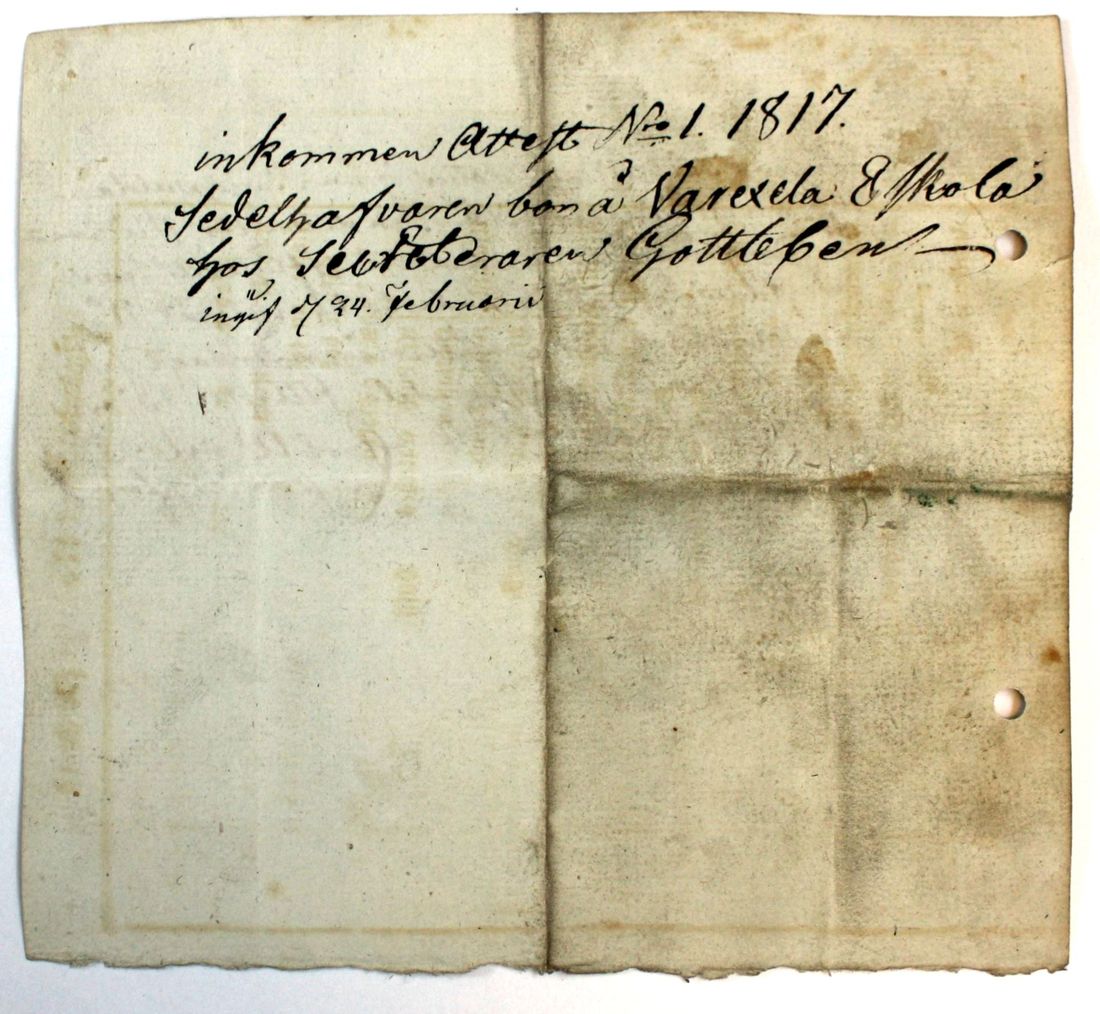 inkommen Attest Nro 1. 1817.
Sedelhafvaren bor å Varexela Eskola
hos Secreteraren Gottleben
ingif d 24. Februarii